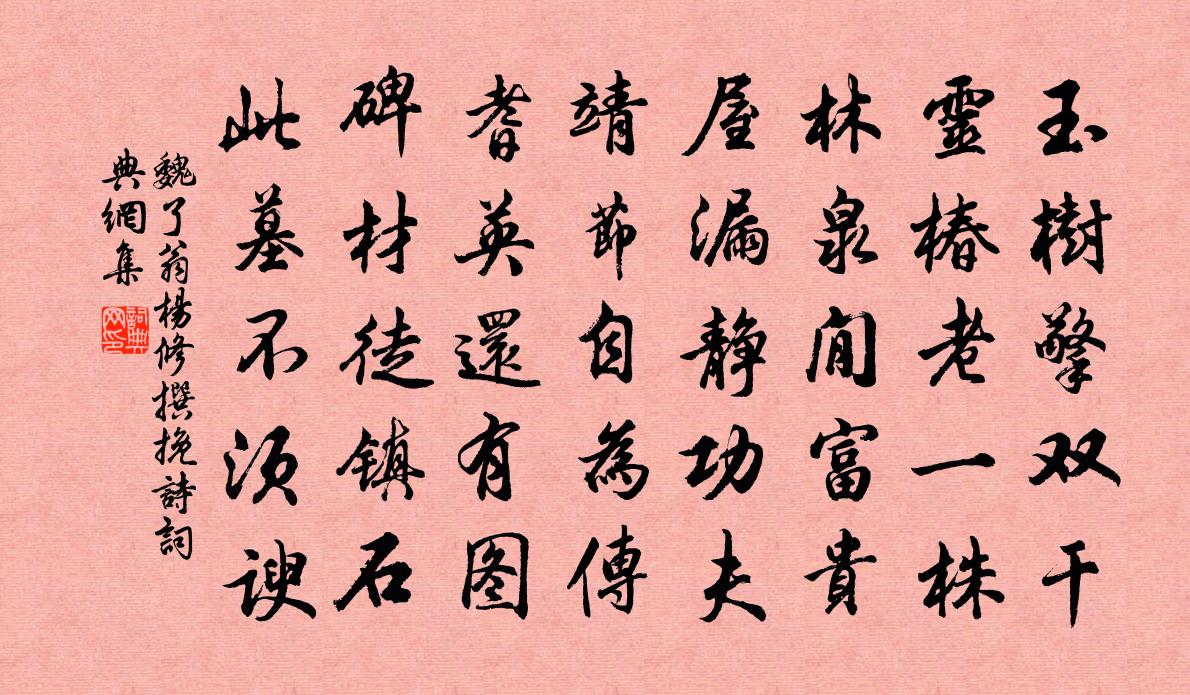 玉樹擎双干
靈椿老一株
林泉閒富貴
屋漏静功夫
靖節自為傳
耆英還有图
碑材徒鎮石
此墓不須諛
魏了翁楊修撰挽詩詞
典網集
詞典
网印